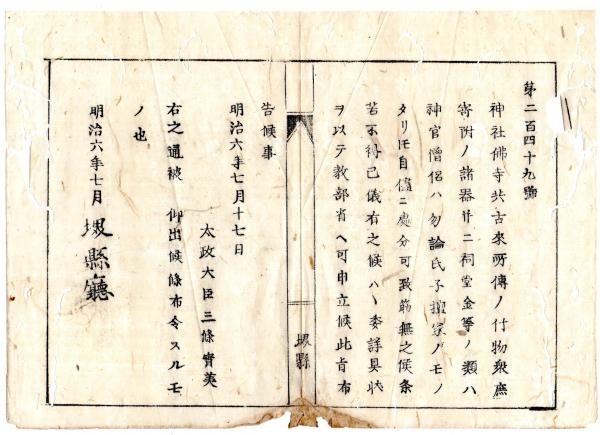 第二百四十九號
神社佛寺共古來所傳ノ什物衆庶
寄附ノ諸器并ニ祠堂金等ノ類ハ
神官僧侶ハ勿論氏子檀家ノモノ
タリ𪜈自儘ニ處分可致筋無之候条
若不得已儀有之候ハヽ委詳具狀
ヲ以テ教部省ヘ可申立候此旨布
告候事
明治六年七月十七日
太政大臣三條實美
右之通被 仰出候條布令スルモ
ノ也
明治六年七月 堺縣廳
堺縣